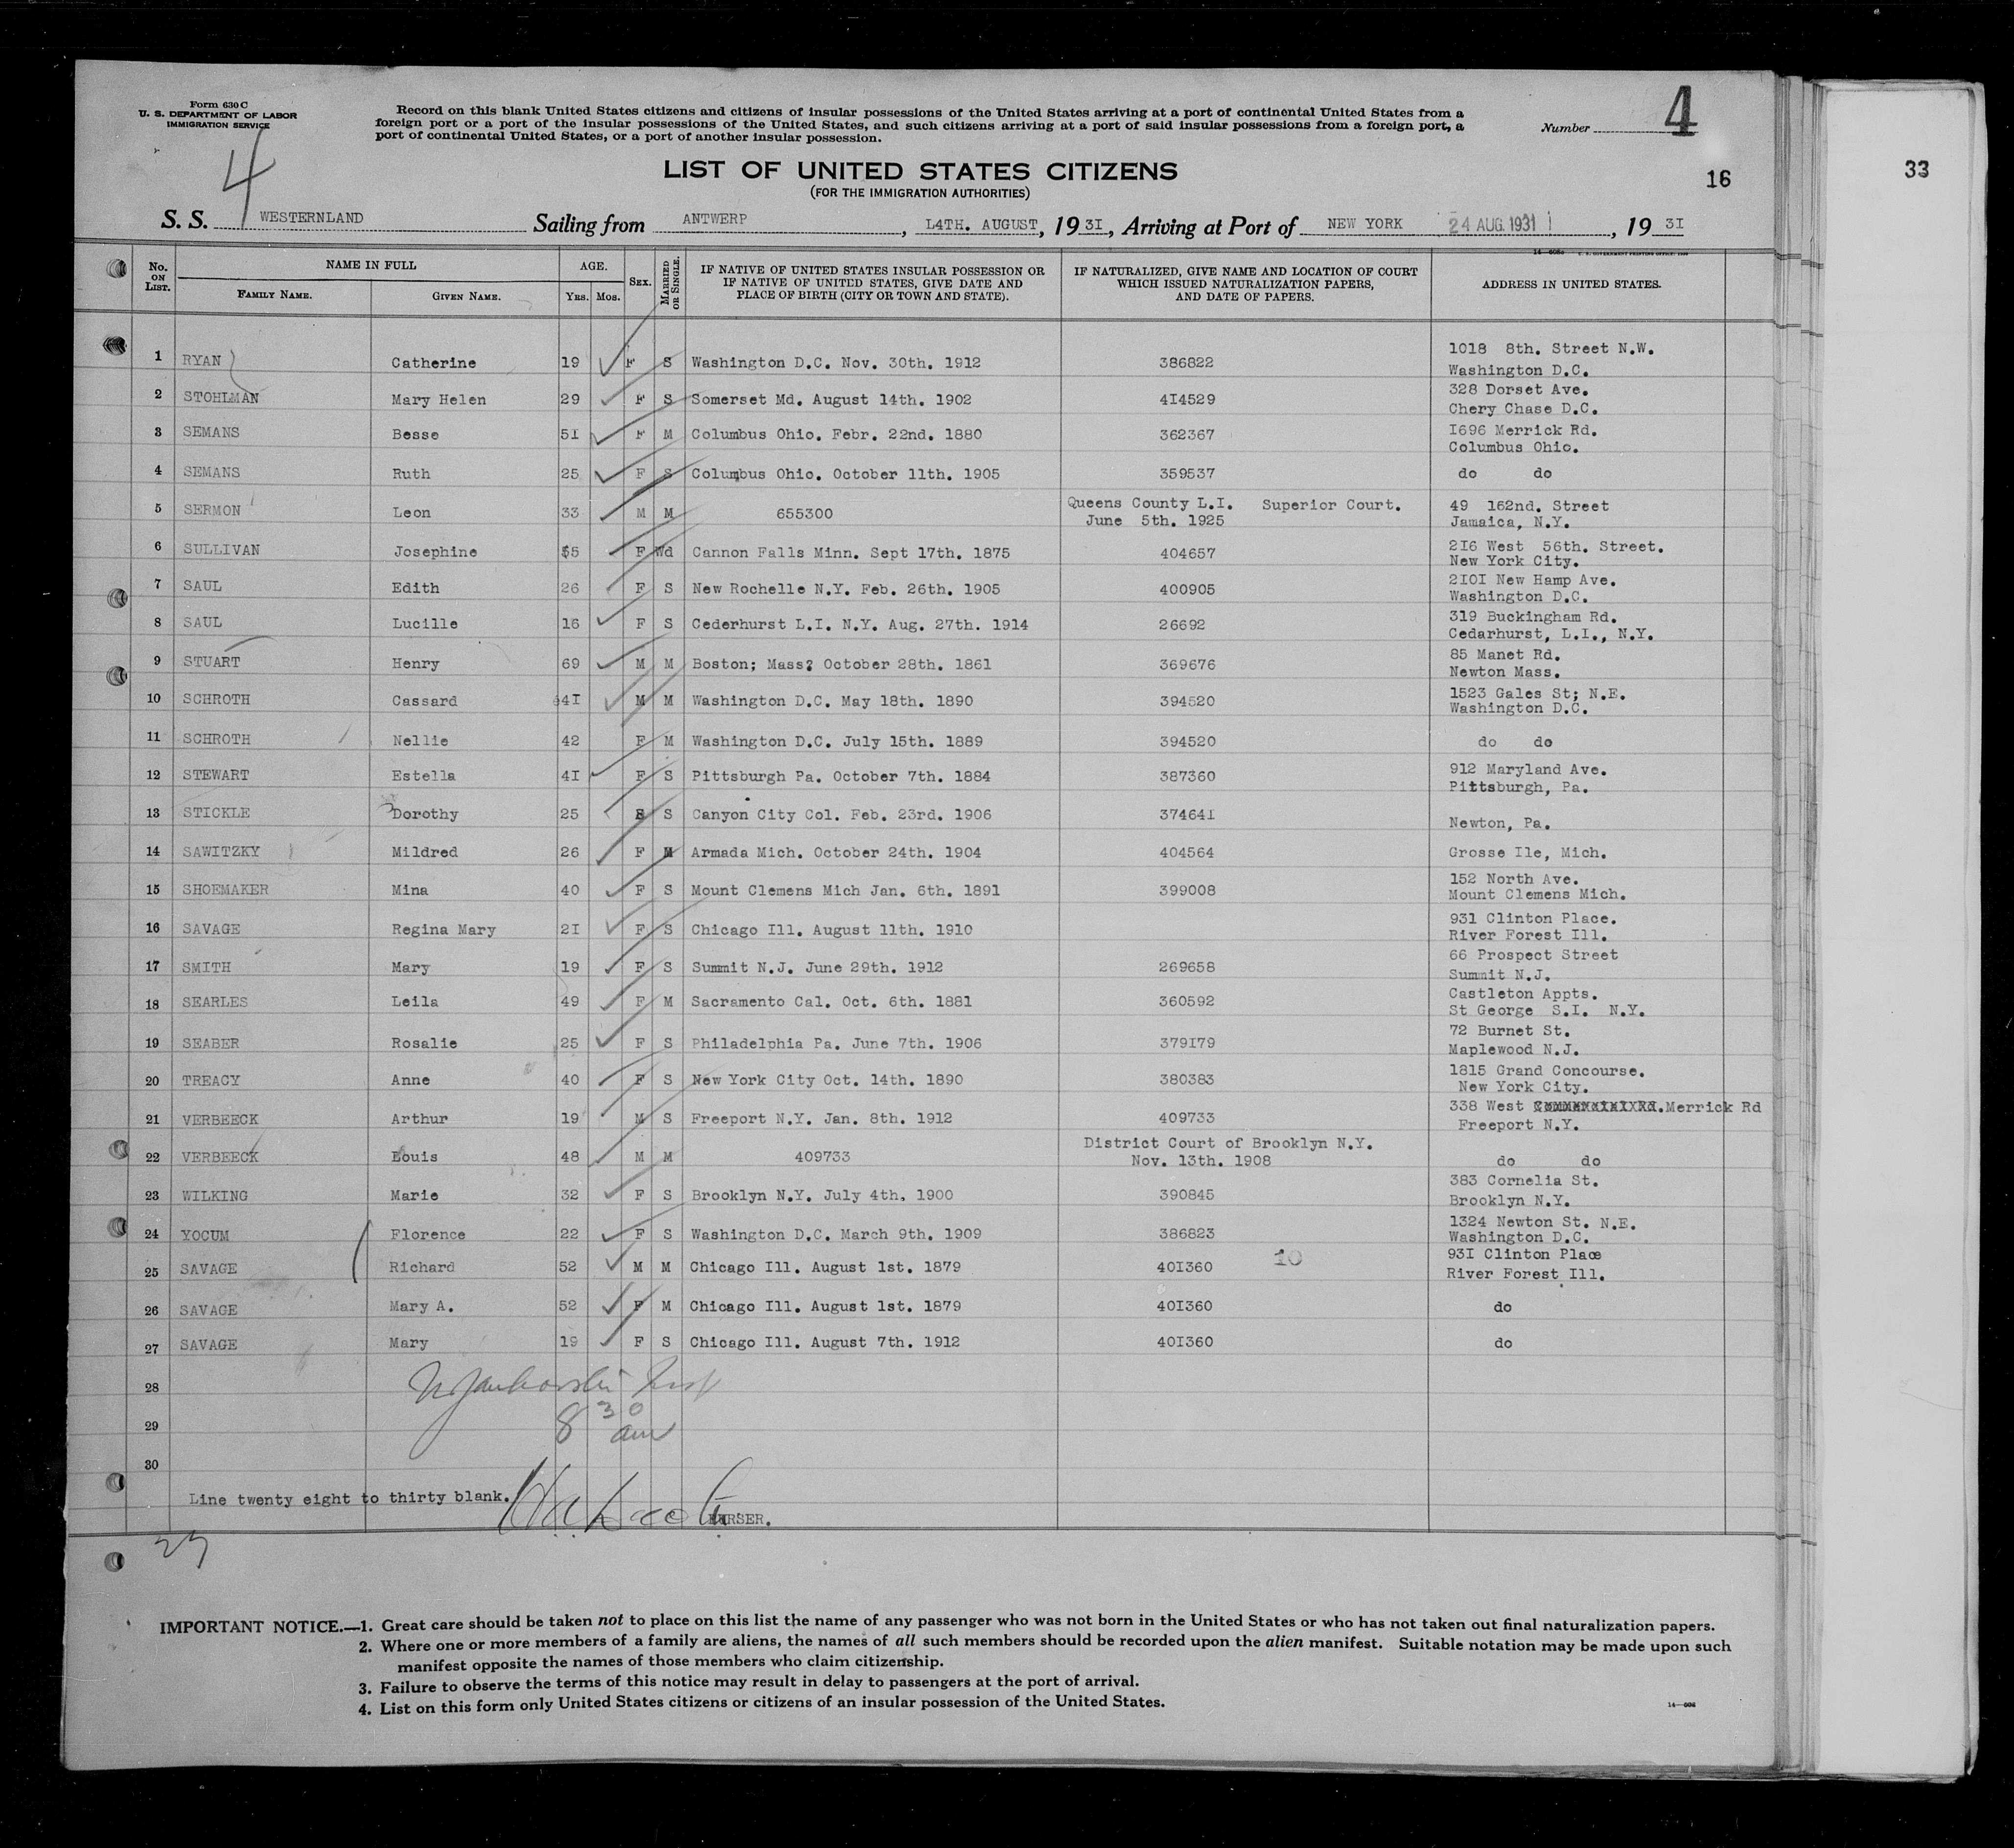 Form 630 C
U. S. DEPARTMENT OF LABOR
IMMIGRATION SERVICE
Record on this blank United States citizens and citizens of insular possessions of the United States arriving at a port of continental United States from a
foreign port or a port of the insular possessions of the United States, and such citizens arriving at a port of said insular possessions from a foreign port, a
port of continental United States, or a port of another insular possession.
Number 4
4
16
33
LIST OF UNITED STATES CITIZENS
(FOR THE IMMIGRATION AUTHORITIES)
S. S. WESTERNLAND Sailing from ANTWERP, L4TH. AUGUST, 19 3I, Arriving at Port of NEW YORK 24 AUG. 1931, 19 3I
No. ON LIST. NAME IN FULL AGE. SEX. MARRIED OR SINGLE. IF NATIVE OF UNITED STATES INSULAR POSSESSION OR IF NATIVE OF UNITED STATES, GIVE DATE AND PLACE OF BIRTH (CITY OR TOWN AND STATE). IF NATURALIZED, GIVE NAME AND LOCATION OF COURT WHICH ISSUED NATURALIZATION PAPERS, AND DATE OF PAPERS. ADDRESS IN UNITED STATES.
FAMILY NAME. GIVEN NAME. YRS. MOS.
1 RYAN Catherine 19 F S Washington D.C. Nov. 30th. 1912 386822 1018 8th. Street N.W.
Washington D.C.
2 STOHLMAN Mary Helen 29 F S Somerset Md. August 14th. 1902 4I4529 328 Dorset Ave.
Chery Chase D.C.
3 SEMANS Besse 5I F M Columbus Ohio. Febr. 22nd. 1880 362367 I696 Merrick Rd.
Columbus Ohio.
4 SEMANS Ruth 25 F S Columbus Ohio. October 11th. 1905 359537 do do
5 SERMON Leon 33 M M 655300 Queens County L.I. Superior Court.
June 5th. 1925 49 162nd. Street
Jamaica, N.Y.
6 SULLIVAN Josephine 55 F Wd Cannon Falls Minn. Sept 17th. 1875 404657 2I6 West 56th. Street.
New York City.
7 SAUL Edith 26 F S New Rochelle N.Y. Feb. 26th. 1905 400905 2I0I New Hamp Ave.
Washington D.C.
8 SAUL Lucille 16 F S Cederhurst L.I. N.Y. Aug. 27th. 1914 26692 319 Buckingham Rd.
Cedarhurst, L.I., N.Y.
9 STUART Henry 69 M M Boston; Mass? October 28th. 1861 369676 85 Manet Rd.
Newton Mass.
10 SCHROTH Cassard 4I M M Washington D.C. May 18th. 1890 394520 1523 Gales St; N.E.
Washington D.C.
11 SCHROTH Nellie 42 F M Washington D.C. July 15th. 1889 394520 do do
12 STEWART Estella 4I F S Pittsburgh Pa. October 7th. 1884 387360 912 Maryland Ave.
Pittsburgh, Pa.
13 STICKLE Dorothy 25 S Canyon City Col. Feb. 23rd. 1906 37464I Newton, Pa.
14 SAWITZKY Mildred 26 F M Armada Mich. October 24th. 1904 404564 Grosse Ile, Mich.
15 SHOEMAKER Mina 40 F S Mount Clemens Mich Jan. 6th. 1891 399008 152 North Ave.
Mount Clemens Mich.
16 SAVAGE Regina Mary 2I F S Chicago Ill. August 11th. 1910 931 Clinton Place.
River Forest Ill.
17 SMITH Mary 19 F S Summit N.J. June 29th. 1912 269658 66 Prospect Street
Summit N.J.
18 SEARLES Leila 49 F M Sacramento Cal. Oct. 6th. 1881 360592 Castleton Appts.
St George S.I. N.Y.
19 SEABER Rosalie 25 F S Philadelphia Pa. June 7th. 1906 379I79 72 Burnet St.
Maplewood N.J.
20 TREACY Anne 40 F S New York City Oct. 14th. 1890 380383 1815 Grand Concourse.
New York City.
21 VERBEECK Arthur 19 M S Freeport N.Y. Jan. 8th. 1912 409733 338 West Merrick Rd
Freeport N.Y.
22 VERBEECK Louis 48 M M 409733 District Court of Brooklyn N.Y.
Nov. 13th. 1908 do do
23 WILKING Marie 32 F S Brooklyn N.Y. July 4th, 1900 390845 383 Cornelia St.
Brooklyn N.Y.
24 YOCUM Florence 22 F S Washington D.C. March 9th. 1909 386823 1324 Newton St. N.E.
Washington D.C.
25 SAVAGE Richard 52 M M Chicago Ill. August 1st. 1879 40I360 10 93I Clinton Place
River Forest Ill.
26 SAVAGE Mary A. 52 F M Chicago Ill. August 1st. 1879 40I360 do
27 SAVAGE Mary 19 F S Chicago Ill. August 7th. 1912 40I360 do
28
29 8 30 am
30
Line twenty eight to thirty blank.
PURSER.
27
IMPORTANT NOTICE.—1. Great care should be taken not to place on this list the name of any passenger who was not born in the United States or who has not taken out final naturalization papers.
2. Where one or more members of a family are aliens, the names of all such members should be recorded upon the alien manifest. Suitable notation may be made upon such
manifest opposite the names of those members who claim citizenship.
3. Failure to observe the terms of this notice may result in delay to passengers at the port of arrival.
4. List on this form only United States citizens or citizens of an insular possession of the United States.